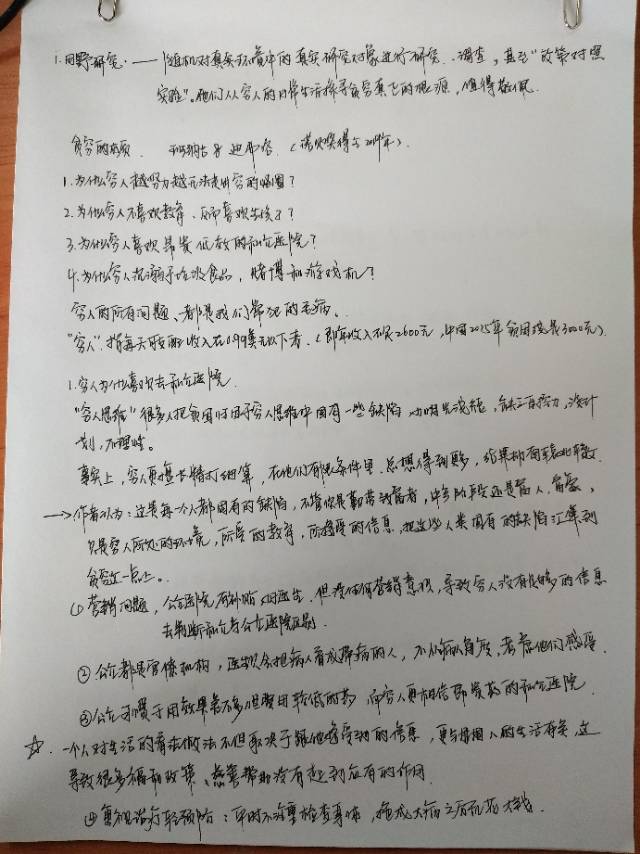 1.田野研究:——随机对真实环境中的真实研究对象进行研究、调查,甚至"政策对照
实验"。他们从穷人的日常生活探寻贫穷真正的根源,值得敬佩。
贫穷的本质 班纳吉 & 迪弗洛 (诺贝奖得主 2019年)
1.为什么穷人越努力越无法走出穷的怪圈?
2.为什么穷人不喜欢教育、反而喜欢生孩子?
3.为什么穷人喜欢昂贵低效的私立医院?
4.为什么穷人沉溺于垃圾食品,赌博和游戏机?
穷人的所有问题、都是我们常犯的毛病。
"穷人":指每天可支配收入在0.99美元以下者。(即年收入不足2600元,中国2015年贫困线是3000元)
1.穷人为什么喜欢去私立医院
"穷人思维"很多人把贫困归因于穷人思维中固有一些缺陷 如目光浅短,缺乏自控力,没计
划,不理性。
事实上,穷人更擅长精打细算,在他们有限条件里、总想得到更多,结果
→作者认为:这是每一个人都固有的缺陷,不管你是勤劳致富者,中产阶段还是富人、富豪,
只是穷人所处的环境,所受的教育,所接受的信息,把这些人类固有的缺陷汇集到
贫穷这一点上。
①营销问题,公立医院有补贴如医生、但没任何营销意识,导致穷人没有足够的信息
去判断私立与公立医院区别.
②公立都是官僚机构,医生只会把病人看成得病的人,不从病人角度、考虑他们感受
③公立习惯于用效果差不多但费用较低的药 而穷人更相信即贵药的私立医院.
☆.一个人对生活的看法做法不但取决于跟他接受到的信息,更与周围人的生活有关,这
导致很多福利政策、慈善帮助没有起到应有的作用
④重视治疗轻预防:平时不注重检查身体,拖成大病之后再花大钱.